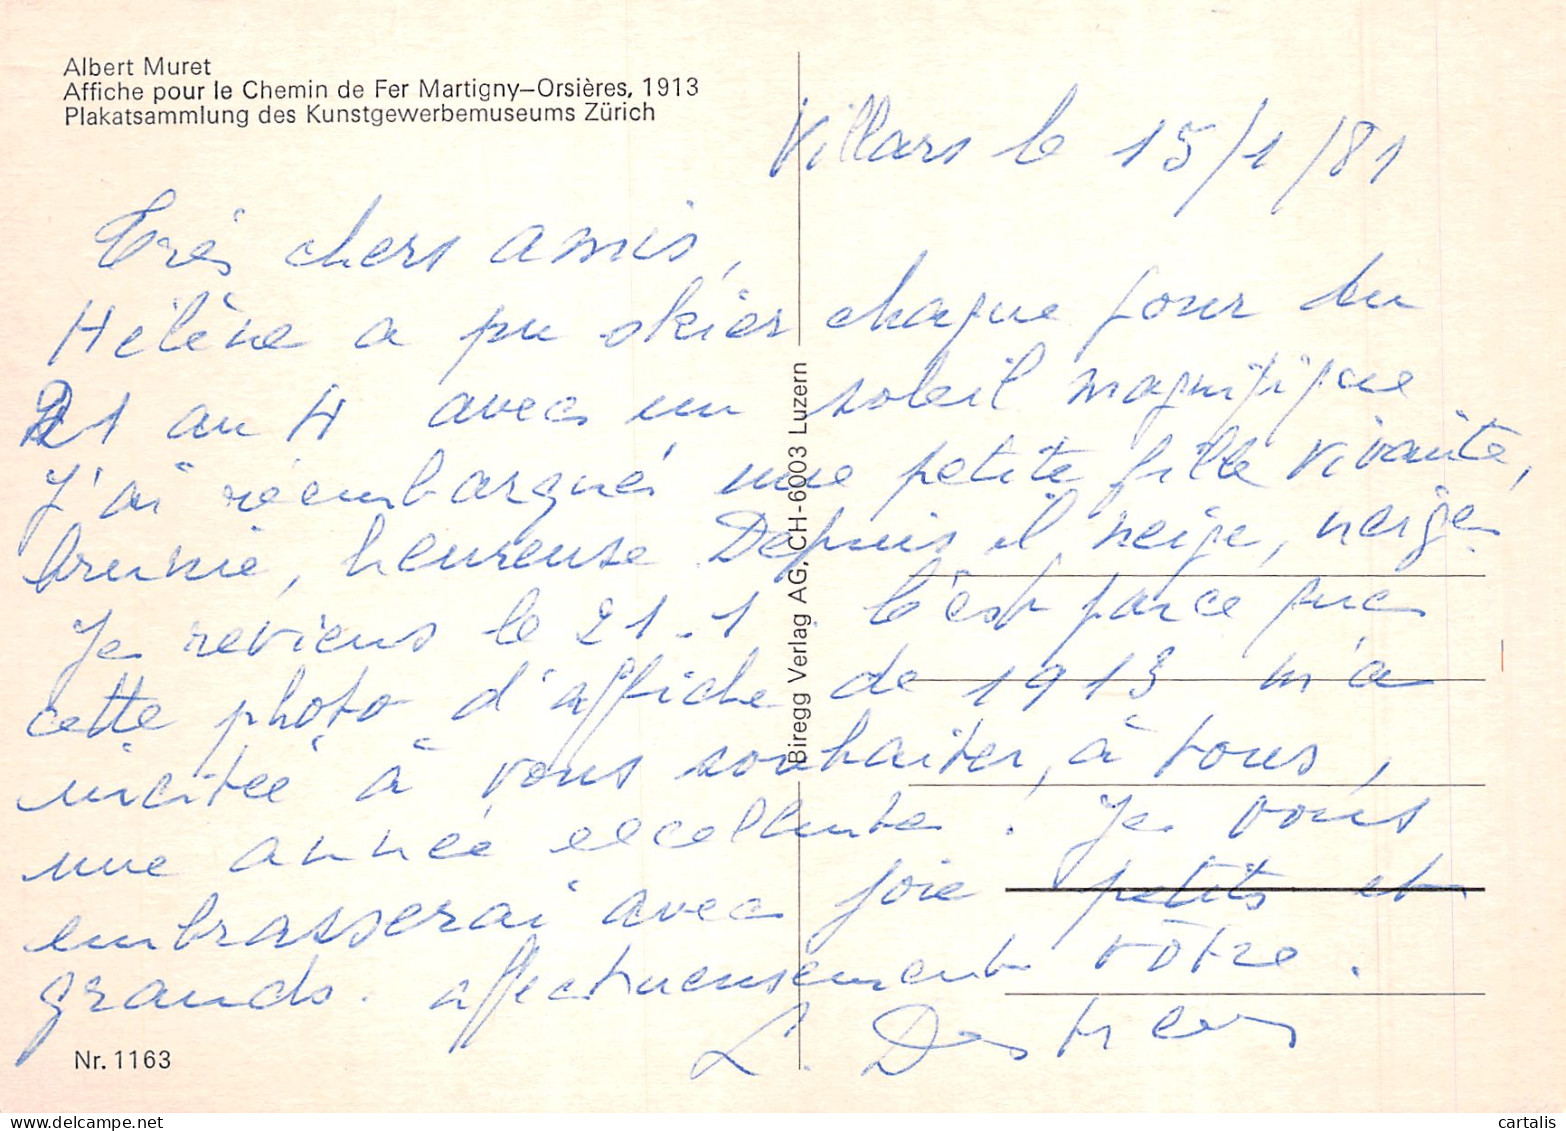 Albert Muret
Affiche pour le Chemin de Fer Martigny–Orsières, 1913
Plakatsammlung des Kunstgewerbemuseums Zürich
Villars le 15/1/81
Très chers amis,
Hélène a pu skier chaque jour du
21 au 4 avec un soleil magnifique
J'ai réembarqué une petite fille vivante,
brunie, heureuse. Depuis il neige, neige.
Je reviens le 21.1. C'est parce que
cette photo d'affiche de 1913 m'a
incitée à vous souhaiter, à tous,
une année excellente. Je vous
embrasserai avec joie petits et
grands. affectueusement vôtre.
L.
Biregg Verlag AG, CH-6003 Luzern
Nr. 1163
cartalis